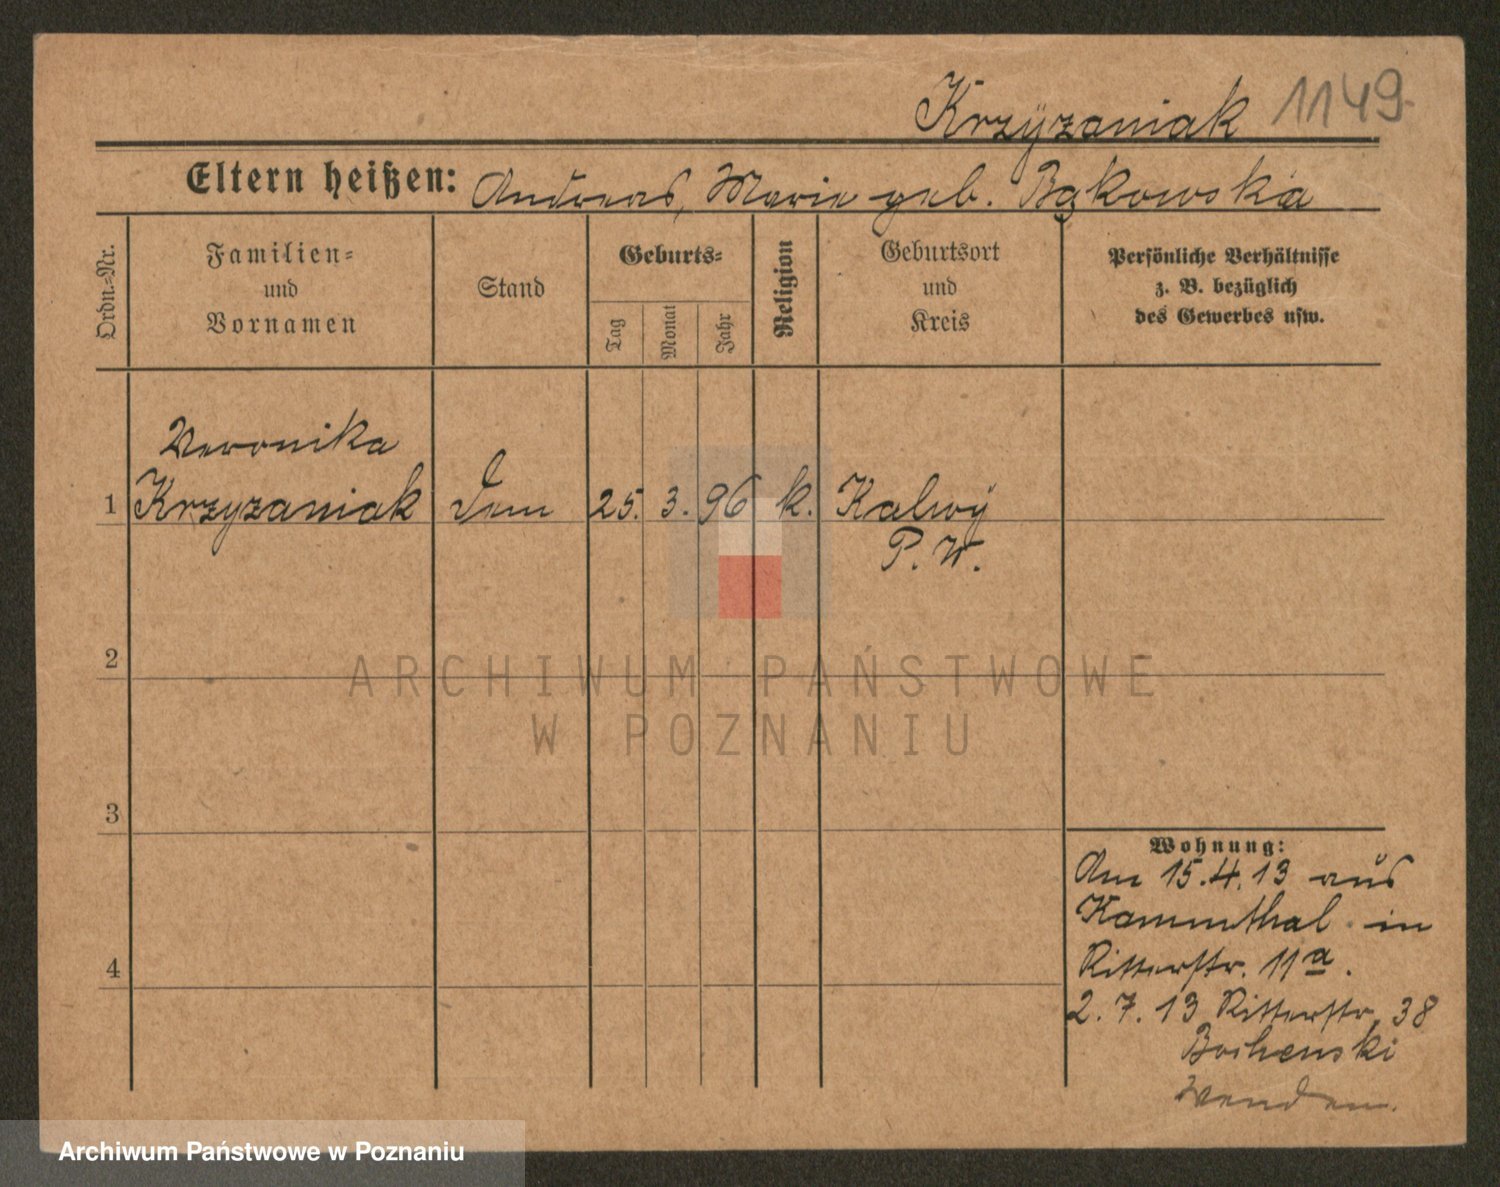 Krzyzaniak 1149.
Eltern heißen: Andreas, Marie geb. Bąkowska
Ordn.-Nr.
Familien-
und
Vornamen
Stand
Geburts-
Tag
Monat
Jahr
Religion
Geburtsort
und
Kreis
Persönliche Verhältnisse
z. B. bezüglich
des Gewerbes usw.
Veronika
1 Krzyzaniak 25. 3. 96 k. Kalwy
P. W.
2
3
4
ARCHIWUM PAŃSTWOWE
W POZNANIU
Wohnung:
Am 15.4.13 aus
Kammthal in
Ritterstr. 11a.
2. 7. 13 Ritterstr. 38
Bochenski
Wenden.
Archiwum Państwowe w Poznaniu